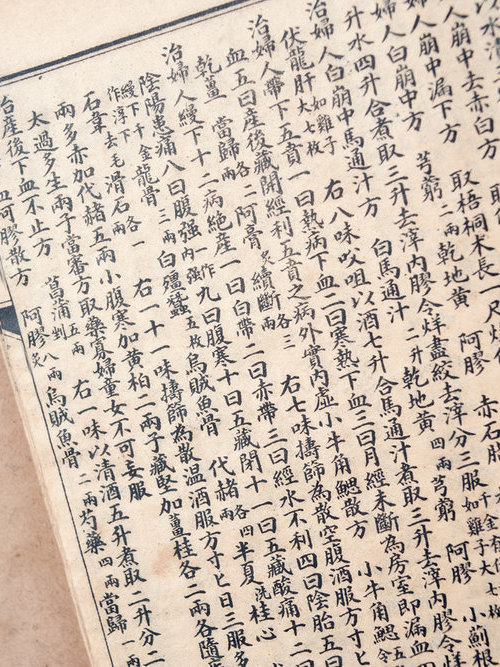 以水
人崩中去赤白方
人崩中漏下方 取梧桐木長一
婦人白崩中方 芎藭二兩乾地黃 阿膠 赤石脂
升水四升合煮取三升去滓內膠令烊盡絞去滓分三服
治婦人白崩中馬通汁方 白馬通汁二升乾地黃四兩芎藭 阿膠 小薊根
伏龍肝如雞子大七枚 右八味㕮咀以酒七升合馬通汁煮取三升去滓內膠令烊
治婦人帶下五賁一曰熱病下血二曰寒熱下血三曰月經未斷為房室即漏血
血五曰產後藏開經利五賁之病外實內虛小牛角鰓散方 小牛角鰓五
乾薑 當歸各二兩 阿膏炙續斷各三兩 右七味擣篩為散空腹酒服方寸匕
治婦人帶下十二病絕產一曰白帶二曰赤帶三曰經水不利四曰陰胎五曰
陰陽患痛八曰腹強內強九曰腹寒十曰五藏閉十一曰五藏酸痛十二曰
龍骨三兩白殭蠶五枚烏賊魚骨 代赭各四兩半夏洗桂心
石韋去毛滑石各一兩 右一十一味擣篩為散溫酒服方寸匕日三服多
兩多赤加代赭五兩小腹寒加黃柏二兩子藏堅加薑桂各二兩各隨
太過多生兩子當審方取藥寡婦童女不可妄服
治產後下血不止方 菖蒲剉五兩 右一味以清酒五升煮取二升分二
阿膠散方 阿膠炙八兩烏賊魚骨二兩芍藥四兩當歸一兩